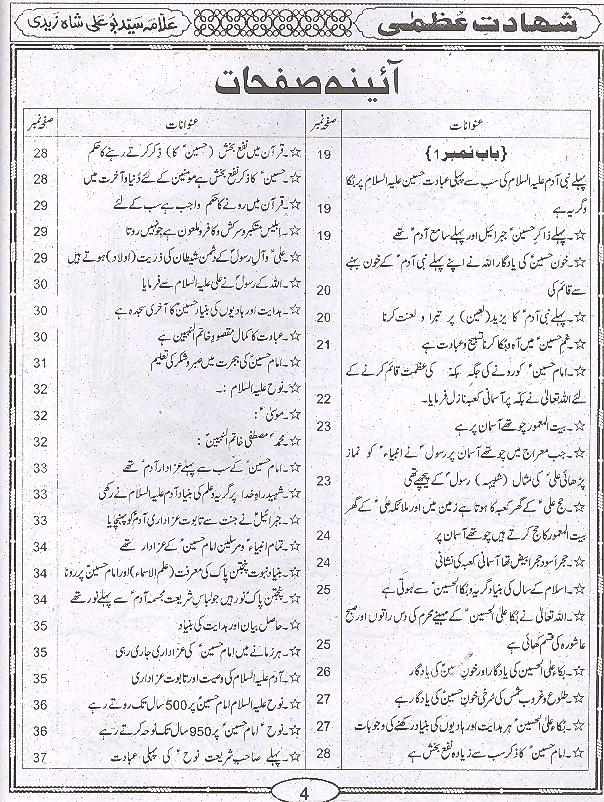 شہادت عظمیٰ
علامہ سید بو علی شاہ زیدی
آئینہ صفحات
عنوانات صفحہ نمبر
{باب نمبر 1} 19
پہلے نبی آدم علیہ السلام کی سب سے پہلی عبادت حسین علیہ السلام پر بُکا
وگریہ ہے 19
☆۔پہلے ذاکرِ حسینؑ جبرائیل اور پہلے سامع آدمؑ تھے 19
☆۔خون حسینؑ کی یادگار اللہ نے اپنے پہلے نبی آدمؑ کے خون بہنے
سے قائم کی 20
☆۔پہلے نبی آدمؑ کا یزید (لعین) پر تبرا و لعنت کرنا 20
☆۔غمِ حسینؑ میں آہ و بُکا کرنا تسبیح و عبادت ہے 21
☆۔امام حسینؑ کو رونے کی جگہ بکہ کی عظمت قائم کرنے کے
لئے اللہ تعالیٰ نے بکہ پر آسمانی کعبہ نازل فرمایا۔ 22
☆۔بیت المعمور چوتھے آسمان پر ہے 23
☆۔جب معراج میں چوتھے آسمان پر رسولؐ نے انبیاءؑ کو نماز
پڑھائی علیؑ کی مثال (شبیہہ) رسولؐ کے پیچھے تھی 23
☆۔حج علیؑ کے گھر کعبہ کا ہوتا ہے زمین میں اور ملائکہ علیؑ کے گھر
بیت المعمور کا حج کرتے ہیں چوتھے آسمان پر 24
☆۔حجر اسود حجر ابیض تھا آسمانی کعبہ کی نشانی 24
☆۔اسلام کے سال کی بنیاد گریہ و بُکا الحسینؑ سے ہوتی ہے 25
☆۔اللہ تعالیٰ نے بُکا علیٰ الحسینؑ کے مہینے محرم کی دس راتوں اور صبح
عاشورہ کی قسم کھائی ہے 25
☆۔بکاء علیٰ الحسین کی یادگار اور خون حسینؑ کی یادگار 26
☆۔طلوع و غروب شمس کی سُرخی خون حسینؑ کی یادگار 27
☆۔بُکاء علیٰ الحسینؑ ہر ہدایت اور ہادیوں کی بنیاد رکھنے کی وجوہات 27
☆۔امام حسینؑ کا ذکر سب سے زیادہ نفع بخش ہے 28
عنوانات صفحہ نمبر
☆۔قرآن میں نفع بخش (حسینؑ کا) ذکر کرتے رہنے کا حکم 28
☆۔حسینؑ کا ذکر نفع بخش ہے مومنین کے لئے دُنیا و آخرت میں 28
☆۔قرآن میں رونے کا حکم واجب ہے سب کے لئے 29
☆۔ابلیس متکبر و سرکش و کافر و ملعون ہے جو نہیں روتا 29
☆۔علیؑ و آلِ رسولؐ کے دشمن شیطان کی ذریت (اولاد) ہوتے ہیں 29
☆۔اللہ کے رسولؐ نے علی علیہ السلام سے فرمایا 30
☆۔ہدایت اور ہادیوں کی بنیاد حسینؑ کا آخری سجدہ ہے 30
☆۔عبادت کا کمال مقصودِ خاتم النبیین ہے 30
☆۔امام حسینؑ کی ہجرت میں صبر و شکر کی تعلیم 31
☆۔نوح علیہ السلام :۔ 32
☆۔موسیٰؑ : 32
☆۔محمدؐ مصطفیٰ خاتم النبیین : 32
☆۔امام حسینؑ کے سب سے پہلے عزادار آدمؑ تھے 33
☆۔شہیدِ راہِ خدا پر گریہ و علم کی بنیاد آدم علیہ السلام نے رکھی 33
☆۔جبرائیلؑ نے جنت سے تابوت عزاداری آدمؑ کو پہنچایا 33
☆۔تمام انبیاءؑ و مرسلین امام حسینؑ کے عزادار تھے 34
☆۔بنیاد نبوت پنجتن پاک کی معرفت (علم الاسماء) اور امام حسینؑ پر رونا 34
☆۔پنجتن پاکؑ نور ہیں جو لباسِ شریعت مجسمہ آدمؑ سے پہلے نور تھے 34
☆۔حاصل بیان اور ہدایت کی بنیاد 35
☆۔ہر زمانے میں امام حسینؑ کی عزاداری جاری رہی 35
☆۔آدم علیہ السلام کی وصیت اور تابوت عزاداری 35
☆۔نوح علیہ السلام امام حسینؑ پر 500 سال تک روتے رہے 36
☆۔نوحؑ امام حسینؑ پر 950 سال تک نوحہ کرتے رہے 36
☆۔پہلے صاحب شریعت نوحؑ کی پہلی عبادت 37
4